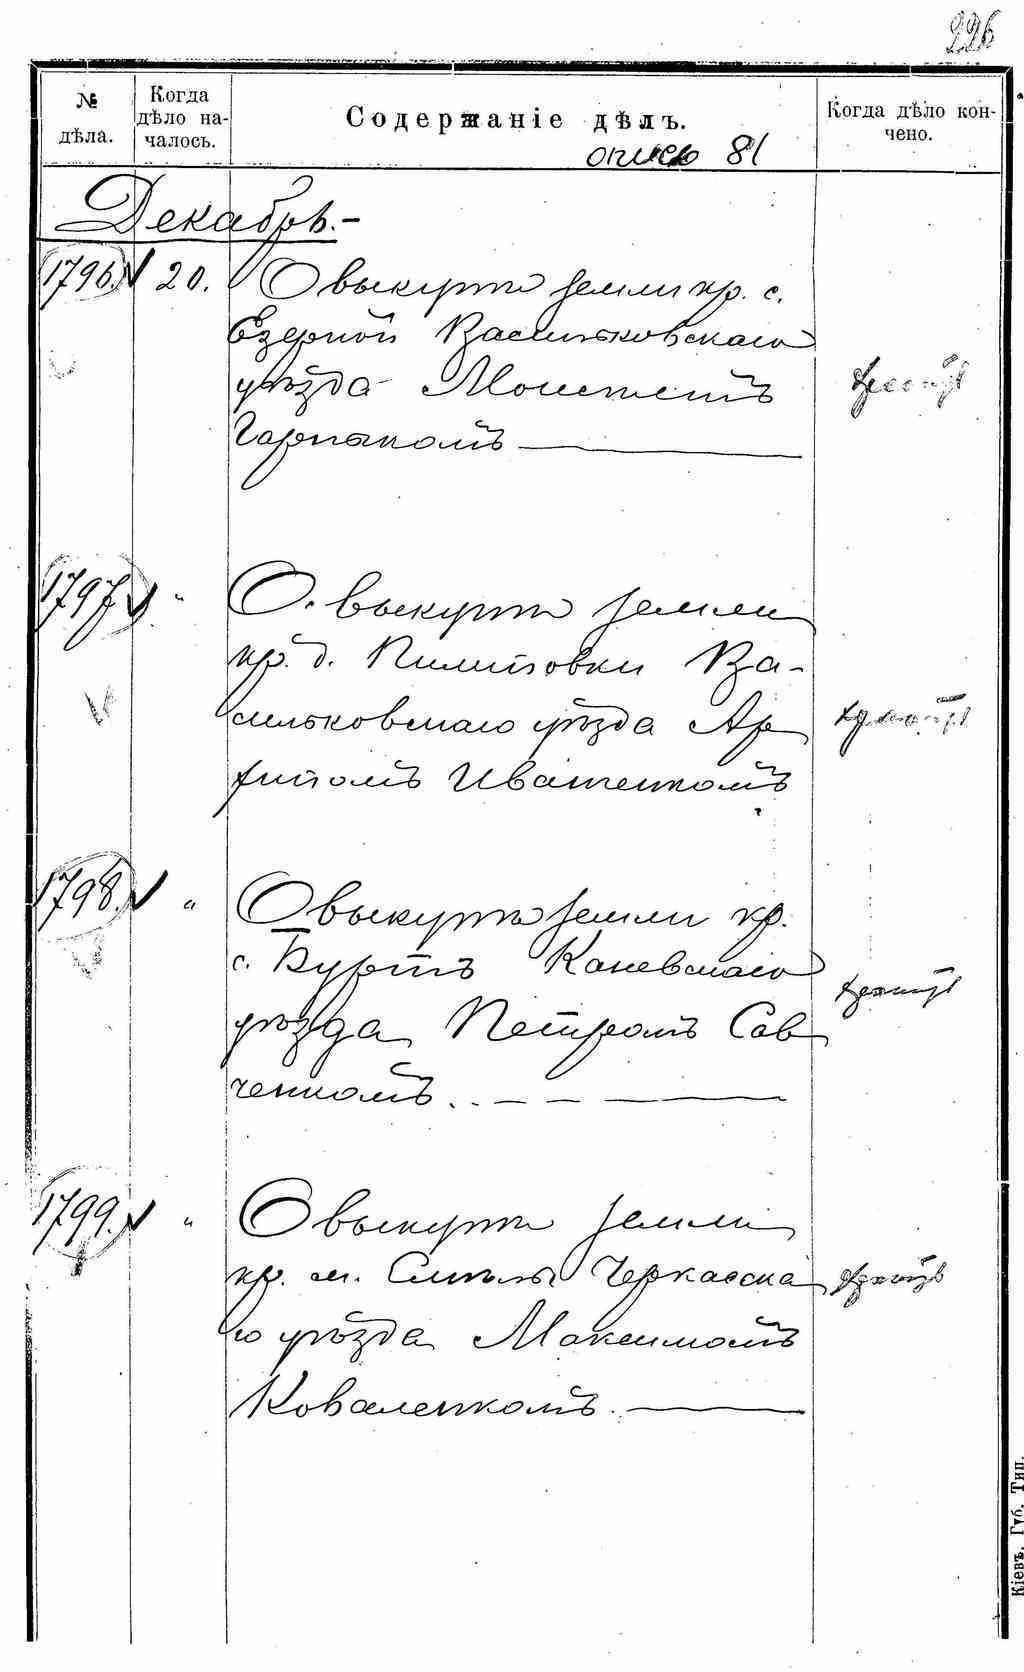 226
№ дѣла.
Когда дѣло началось.
Содержаніе дѣлъ.
Когда дѣло кончено.
опись 81
Декабрь.-
1796. 20. О выкупѣ земли кр. с.
Езерной Васильковскаго
уѣзда Моисеемъ
Гарпыкомъ
1797 " О выкупѣ земли
кр. д. Пилиповки Ва-
сильковскаго уѣзда
Иващенкомъ
1798. " О выкупѣ земли кр.
с. Буртъ Каневскаго
уѣзда Петромъ Сав
ченкомъ
1799. " О выкупѣ земли
кр. м. Смѣлы Черкасска
го уѣзда Максимомъ
Коваленкомъ.
Кіевъ. Губ. Тип.